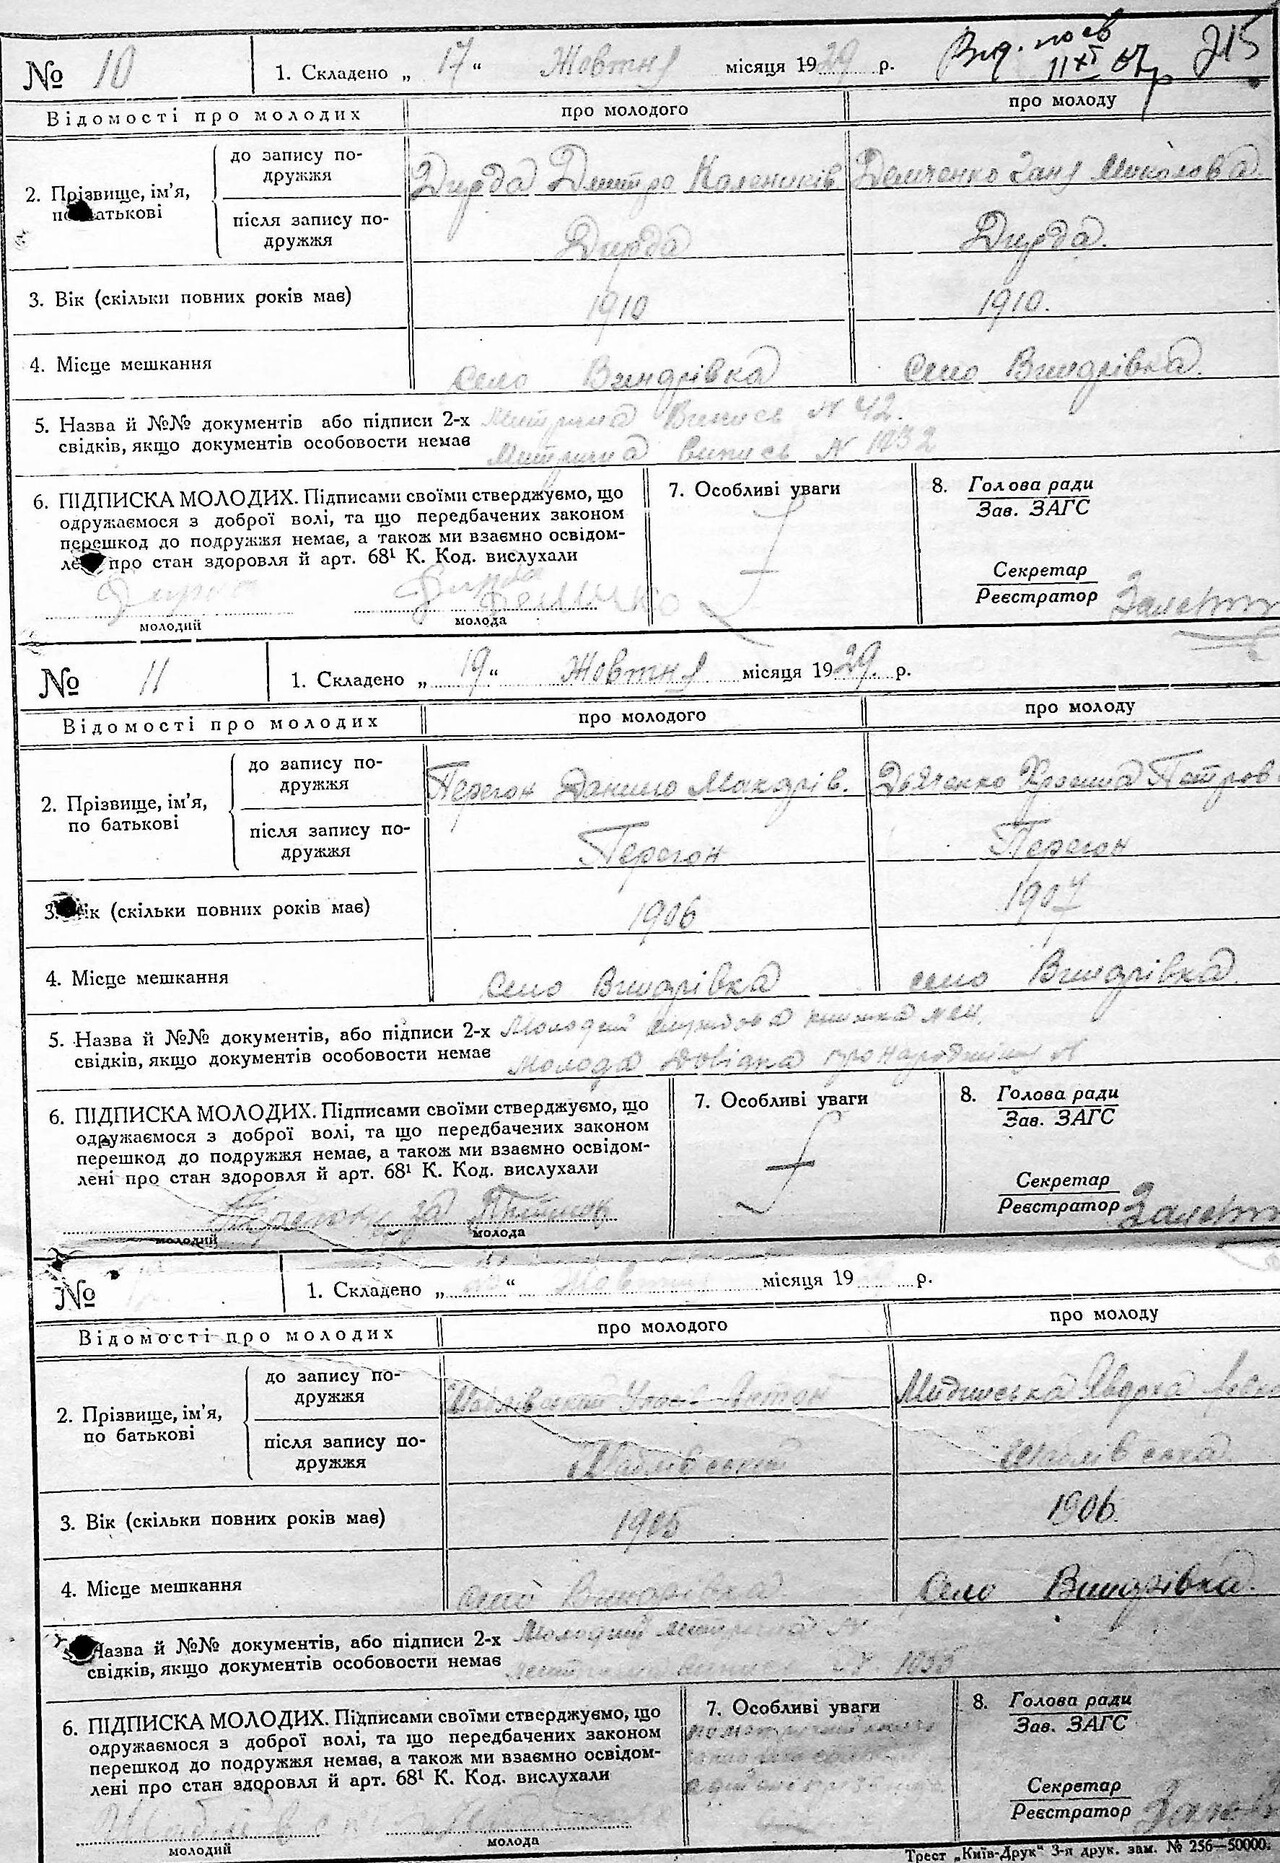 № 10 1. Складено „ 17 “ Жовтня місяця 1929 р. 215
Відомості про молодих про молодого про молоду
2. Прізвище, ім’я, по батькові
до запису подружжя Дирда Дмитро Калеників Демченко Ганя Миколова
після запису подружжя Дирда Дирда.
3. Вік (скільки повних років має) 1910 1910.
4. Місце мешкання село Виндрівка Село Виндрівка.
5. Назва й №№ документів або підписи 2-х Метрична Випись N 42.
свідків, якщо документів особовости немає Метрична випись N 1032
6. ПІДПИСКА МОЛОДИХ. Підписами своїми стверджуємо, що
одружаємося з доброї волі, та що передбачених законом
перешкод до подружжя немає, а також ми взаємно освідом-
лені про стан здоровля й арт. 68¹ К. Код. вислухали
Дирда Демченко
молодий молода
7. Особливі уваги
8. Голова ради
Зав. ЗАГС
Секретар
Реєстратор
№ 11 1. Складено „ 19 “ Жовтня місяця 1929. р.
Відомості про молодих про молодого про молоду
2. Прізвище, ім’я,
по батькові
до запису по-
дружжя Перегон Данило Макарів. Дьяченко Петров
після запису по-
дружжя Перегон Перегон
3. Вік (скільки повних років має) 1906 1907
4. Місце мешкання Село Виндрівка село Виндрівка
5. Назва й №№ документів, або підписи 2-х Молодий книжка
свідків, якщо документів особовости немає Молода довідка про народження N
6. ПІДПИСКА МОЛОДИХ. Підписами своїми стверджуємо, що
одружаємося з доброї волі, та що передбачених законом
перешкод до подружжя немає, а також ми взаємно освідом-
лені про стан здоровля й арт. 68¹ К. Код. вислухали
молодий молода
7. Особливі уваги
8. Голова ради
Зав. ЗАГС
Секретар
Реєстратор
№ 1. Складено „ “ Жовтня місяця 1929 р.
Відомості про молодих про молодого про молоду
2. Прізвище, ім’я,
по батькові
до запису по-
дружжя Шаблівський Антон Явдоха
після запису по-
дружжя Шаблівський Шаблівська
3. Вік (скільки повних років має) 1905 1906
4. Місце мешкання село Виндрівка Село Виндрівка.
Назва й №№ документів, або підписи 2-х Молодий метрична N
свідків, якщо документів особовости немає метрична випись N 1033
6. ПІДПИСКА МОЛОДИХ. Підписами своїми стверджуємо, що
одружаємося з доброї волі, та що передбачених законом
перешкод до подружжя немає, а також ми взаємно освідом-
лені про стан здоровля й арт. 68¹ К. Код. вислухали
молодий молода
7. Особливі уваги
8. Голова ради
Зав. ЗАГС
Секретар
Реєстратор
Трест „Київ-Друк“ 3-я друк. зам. № 256—50000.